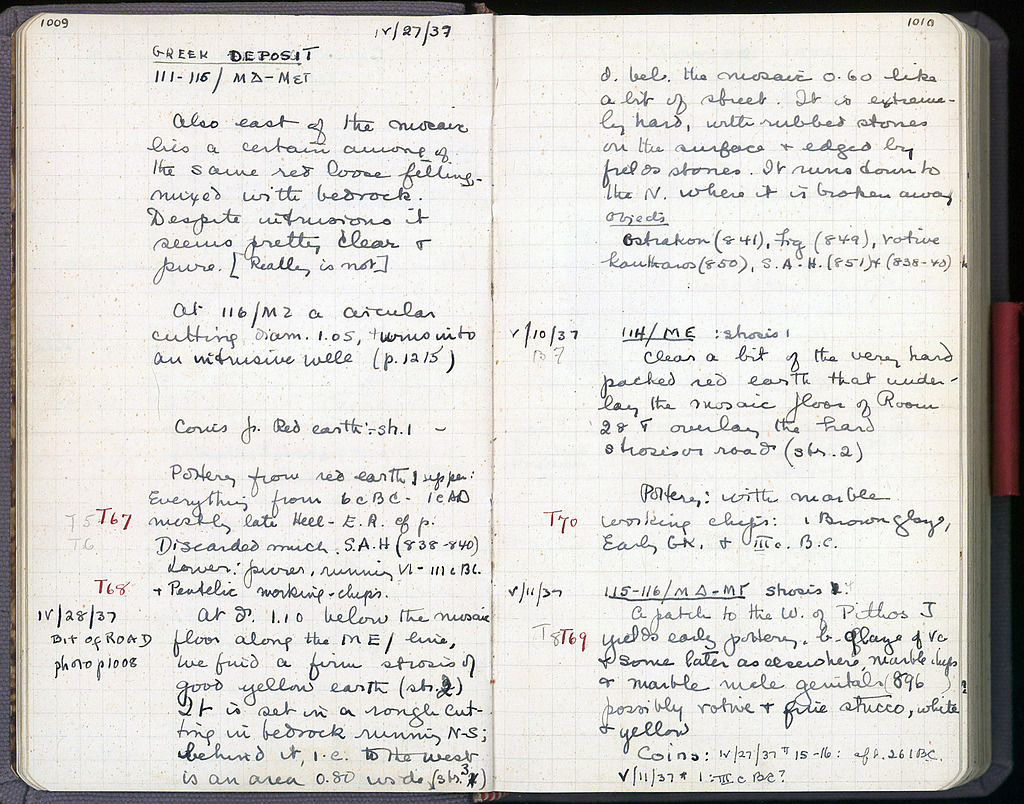 1009
IV/27/37
GREEK DEPOSIT
111-116/ MΔ-MΣT
Also east of the mosaic
lies a certain among of
the same red loose filling,
mixed with bedrock.
Despite intrusions it
seems pretty clear &
pure. [Really is not]
At 116/MZ a circular
cutting diam. 1.05, turns into
an intrusive well (p. 1215)
Coins p. Red earth:- str. 1 -
Pottery from red earth, upper:
Everything from 6cBC - 1cAD
T5 T67 mostly late Hell - E.R. cf p.
T6 Discarded much. S.A.H (838-840)
Lower: purer, running VI - III c BC.
T68 + Pentelic working-chips.
IV/28/37 At d. 1.10 below the mosaic
BIT OF ROAD floor along the ME/ line,
photo p1008 we find a firm strosis of
good yellow earth (str. 2)
It is set in a rough cut-
ting in bedrock running N-S;
behind it, i.e. to the west
is an area 0.80 wide (str. 3)
1010
d. bel. the mosaic 0.60 like
a bit of street. It is extreme-
ly hard, with rubbed stones
on the surface + edged by
fields stones. It runs down to
the N. where it is broken away
Objects
Ostrakon (841), Fig (849), votive
kantharos (850), S.A.H. (851) + (838-40)
V/10/37 114/ME : strosis 1
Clear a bit of the very hard
packed red earth that under-
lay the mosaic floor of Room
28 & overlay the hard
strosis or road (str. 2)
Pottery: with marble
T70 working chips: 1 Brown glaze,
Early Gk. & III c. B.C.
V/11/37 115-116/MΔ-MΓ strosis
A patch to the W. of Pithos J
T8 T69 yields early pottery, b-glaze of Vc
& some later as elsewhere, marble chips
& marble male genitals (896 )
possibly votive + fine stucco, white
& yellow
Coins: IV/27/37 # 15-16: aft. 261 BC.
V/11/37 # 1: III c BC?